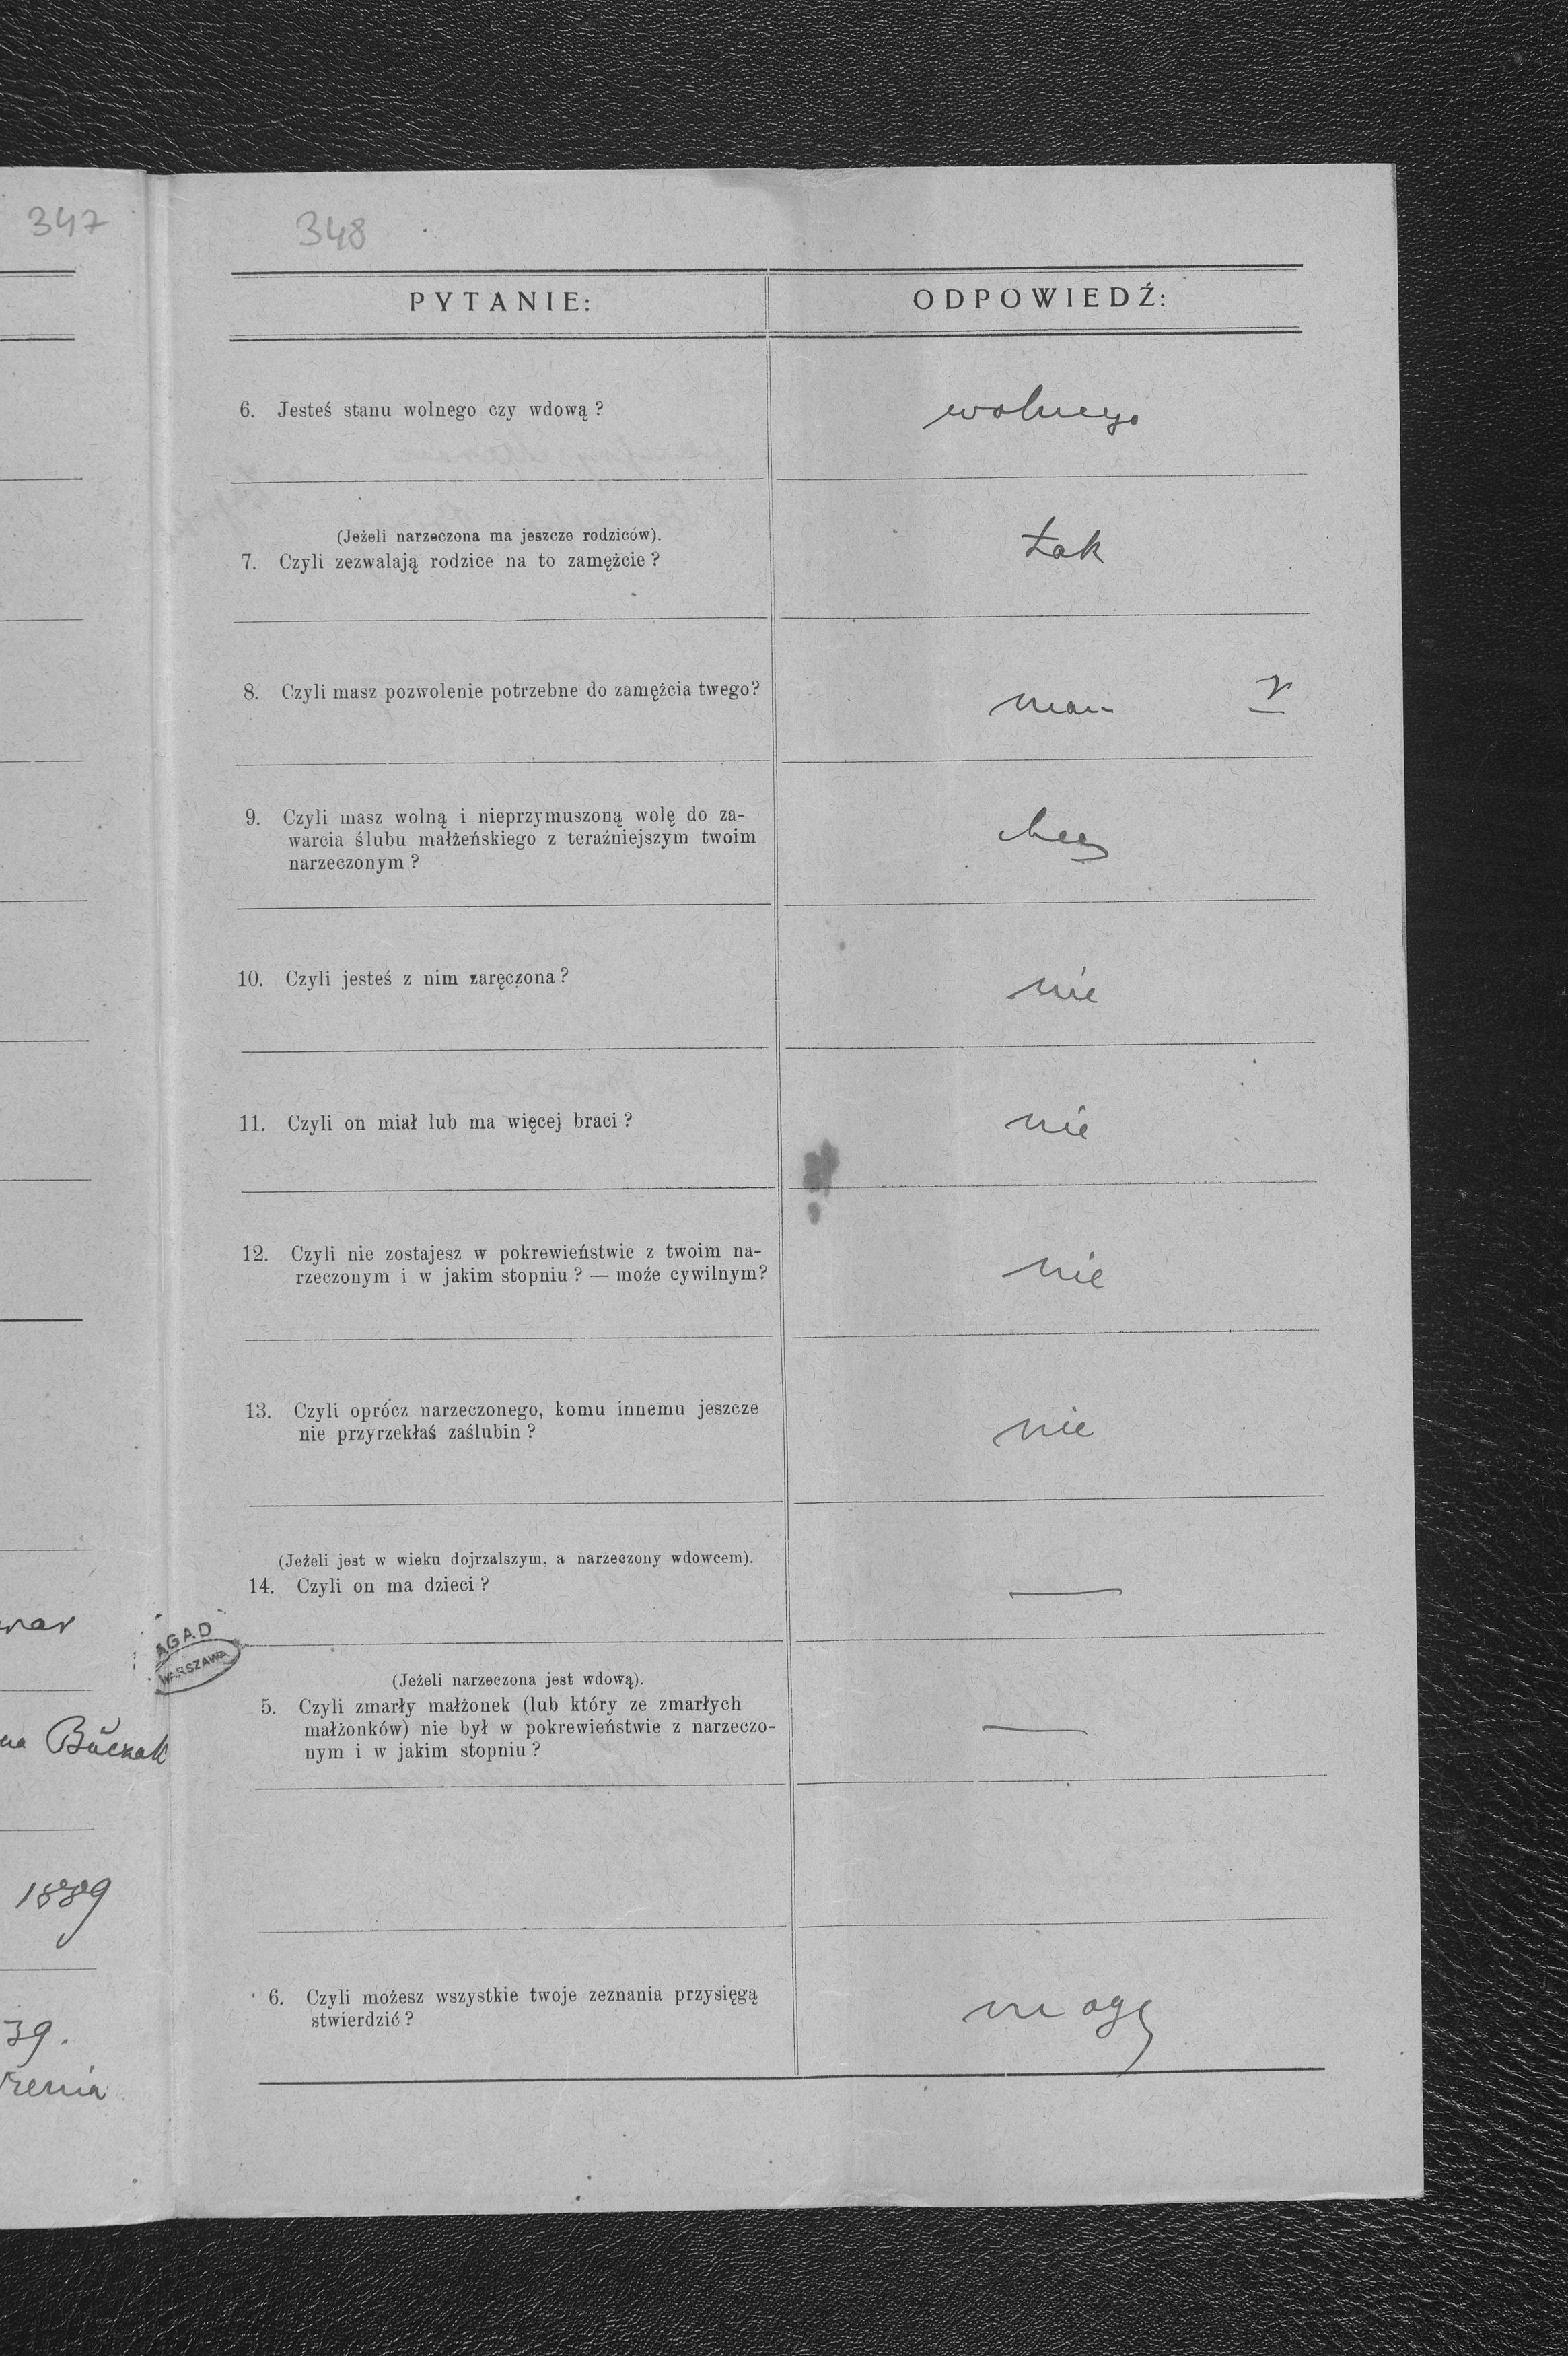 347
348
PYTANIE:
ODPOWIEDŹ:
6. Jesteś stanu wolnego czy wdową?
wolnego
(Jeżeli narzeczona ma jeszcze rodziców).
7. Czyli zezwalają rodzice na to zamężcie?
tak
8. Czyli masz pozwolenie potrzebne do zamężcia twego?
mam
9. Czyli masz wolną i nieprzymuszoną wolę do za-
warcia ślubu małżeńskiego z teraźniejszym twoim
narzeczonym?
chcę
10. Czyli jesteś z nim zaręczona?
nie
11. Czyli on miał lub ma więcej braci?
nie
12. Czyli nie zostajesz w pokrewieństwie z twoim na-
rzeczonym i w jakim stopniu? — może cywilnym?
nie
13. Czyli oprócz narzeczonego, komu innemu jeszcze
nie przyrzekłaś zaślubin?
nie
(Jeżeli jest w wieku dojrzalszym, a narzeczony wdowcem).
14. Czyli on ma dzieci?
—
AGAD
WARSZAWA
(Jeżeli narzeczona jest wdową).
5. Czyli zmarły małżonek (lub który ze zmarłych
małżonków) nie był w pokrewieństwie z narzeczo-
nym i w jakim stopniu?
—
1889
6. Czyli możesz wszystkie twoje zeznania przysięgą
stwierdzić?
mogę
39.